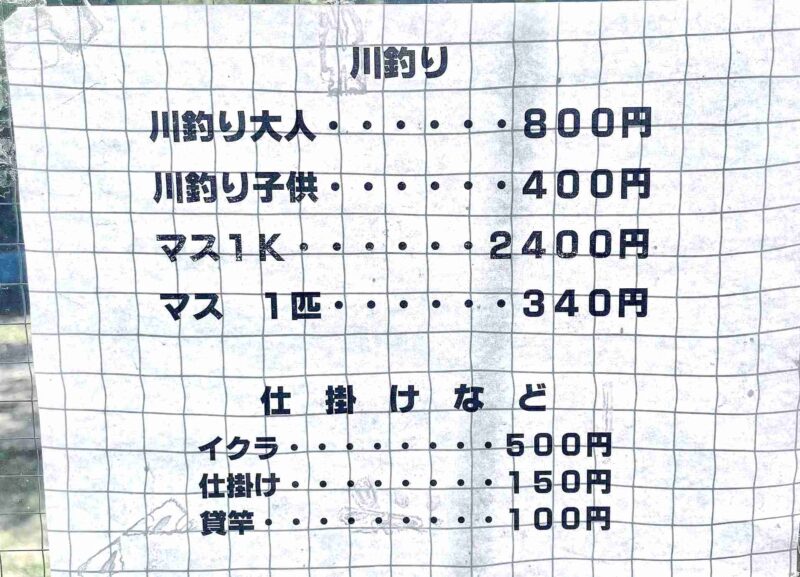 川釣り
川釣り大人・・・・・・８００円
川釣り子供・・・・・・４００円
マス１Ｋ・・・・・・２４００円
マス　１匹・・・・・・３４０円
仕　掛　け　な　ど
イクラ・・・・・・・・５００円
仕掛け・・・・・・・・１５０円
貸竿・・・・・・・・・１００円